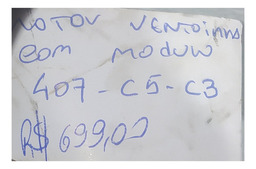 MOTOV VENTOINHA
COM MODULO
407 - C5 - C3
R$ 699,00